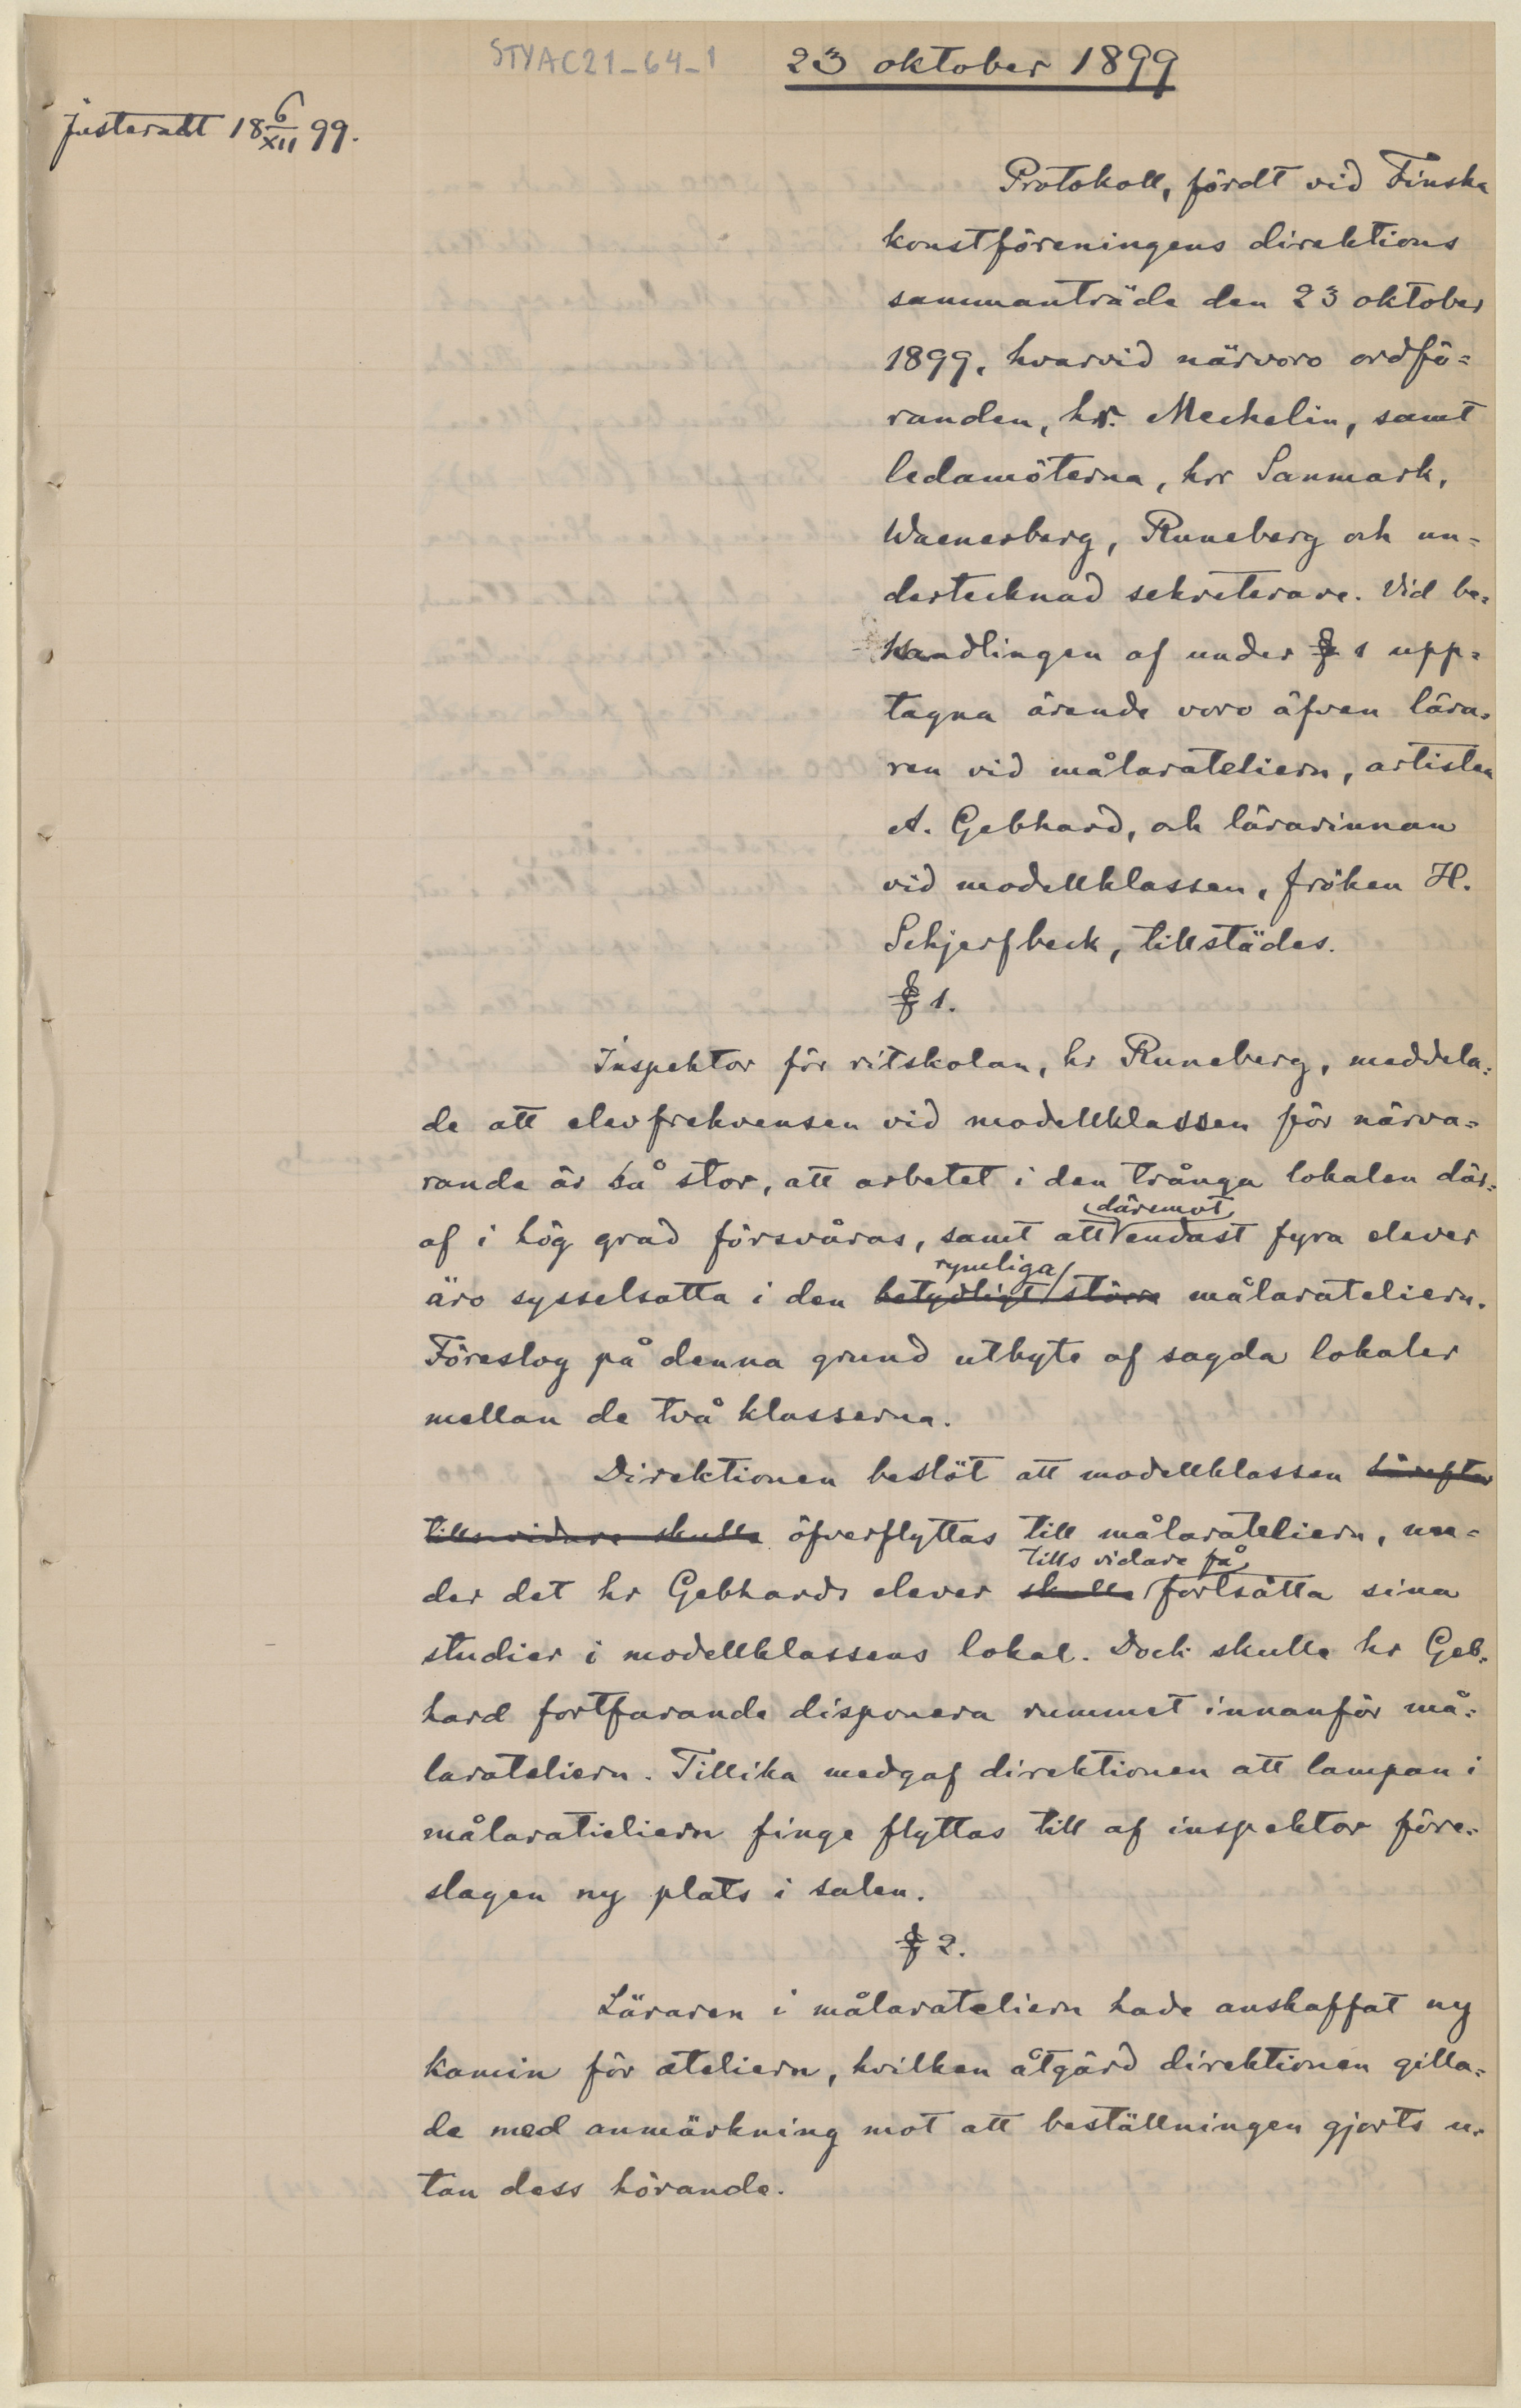 STYAC21_64_1
23 oktober 1899
Justeradt 18 6/XII 99.
Protokoll, fördt vid Finska
konstföreningens direktions
sammanträde den 23 oktober
1899, hvarvid närvoro ordfö=
randen, hr. Mechelin, samt
ledamöterna, hrr Sanmark,
Waenerberg, Runeberg och un=
dertecknad sekreterare. Vid be=
handlingen af under § 1 upp=
tagna ärende voro äfven lära=
ren vid målarateliern, artisten
A. Gebhard, och lärarinnan
vid modellklassen, fröken H.
Schjerfbeck, tillstädes.
§ 1.
Inspektor för ritskolan, hr Runeberg, meddela=
de att elevfrekvensen vid modellklassen för närva=
rande är så stor, att arbetet i den trånga lokalen där=
däremot
af i hög grad försvåras, samt att endast fyra elever
rymliga
äro sysselsatta i den betydligt större målarateliern.
Föreslog på denna grund utbyte af sagda lokaler
mellan de två klasserna.
Direktionen beslöt att modellklassen härefter
tills vidare skulle öfverflyttas till målarateliern, un=
tills vidare få
der det hr Gebhards elever skulle fortsätta sina
studier i modellklassens lokal. Dock skulle hr Geb=
hard fortfarande disponera rummet innanför må=
larateliern. Tillika medgaf direktionen att lampan i
målaratieliern finge flyttas till af inspektor före=
slagen ny plats i salen.
§ 2.
Läraren i målarateliern hade anskaffat ny
kamin för ateliern, hvilken åtgärd direktionen gilla=
de med anmärkning mot att beställningen gjorts u=
tan dess hörande.